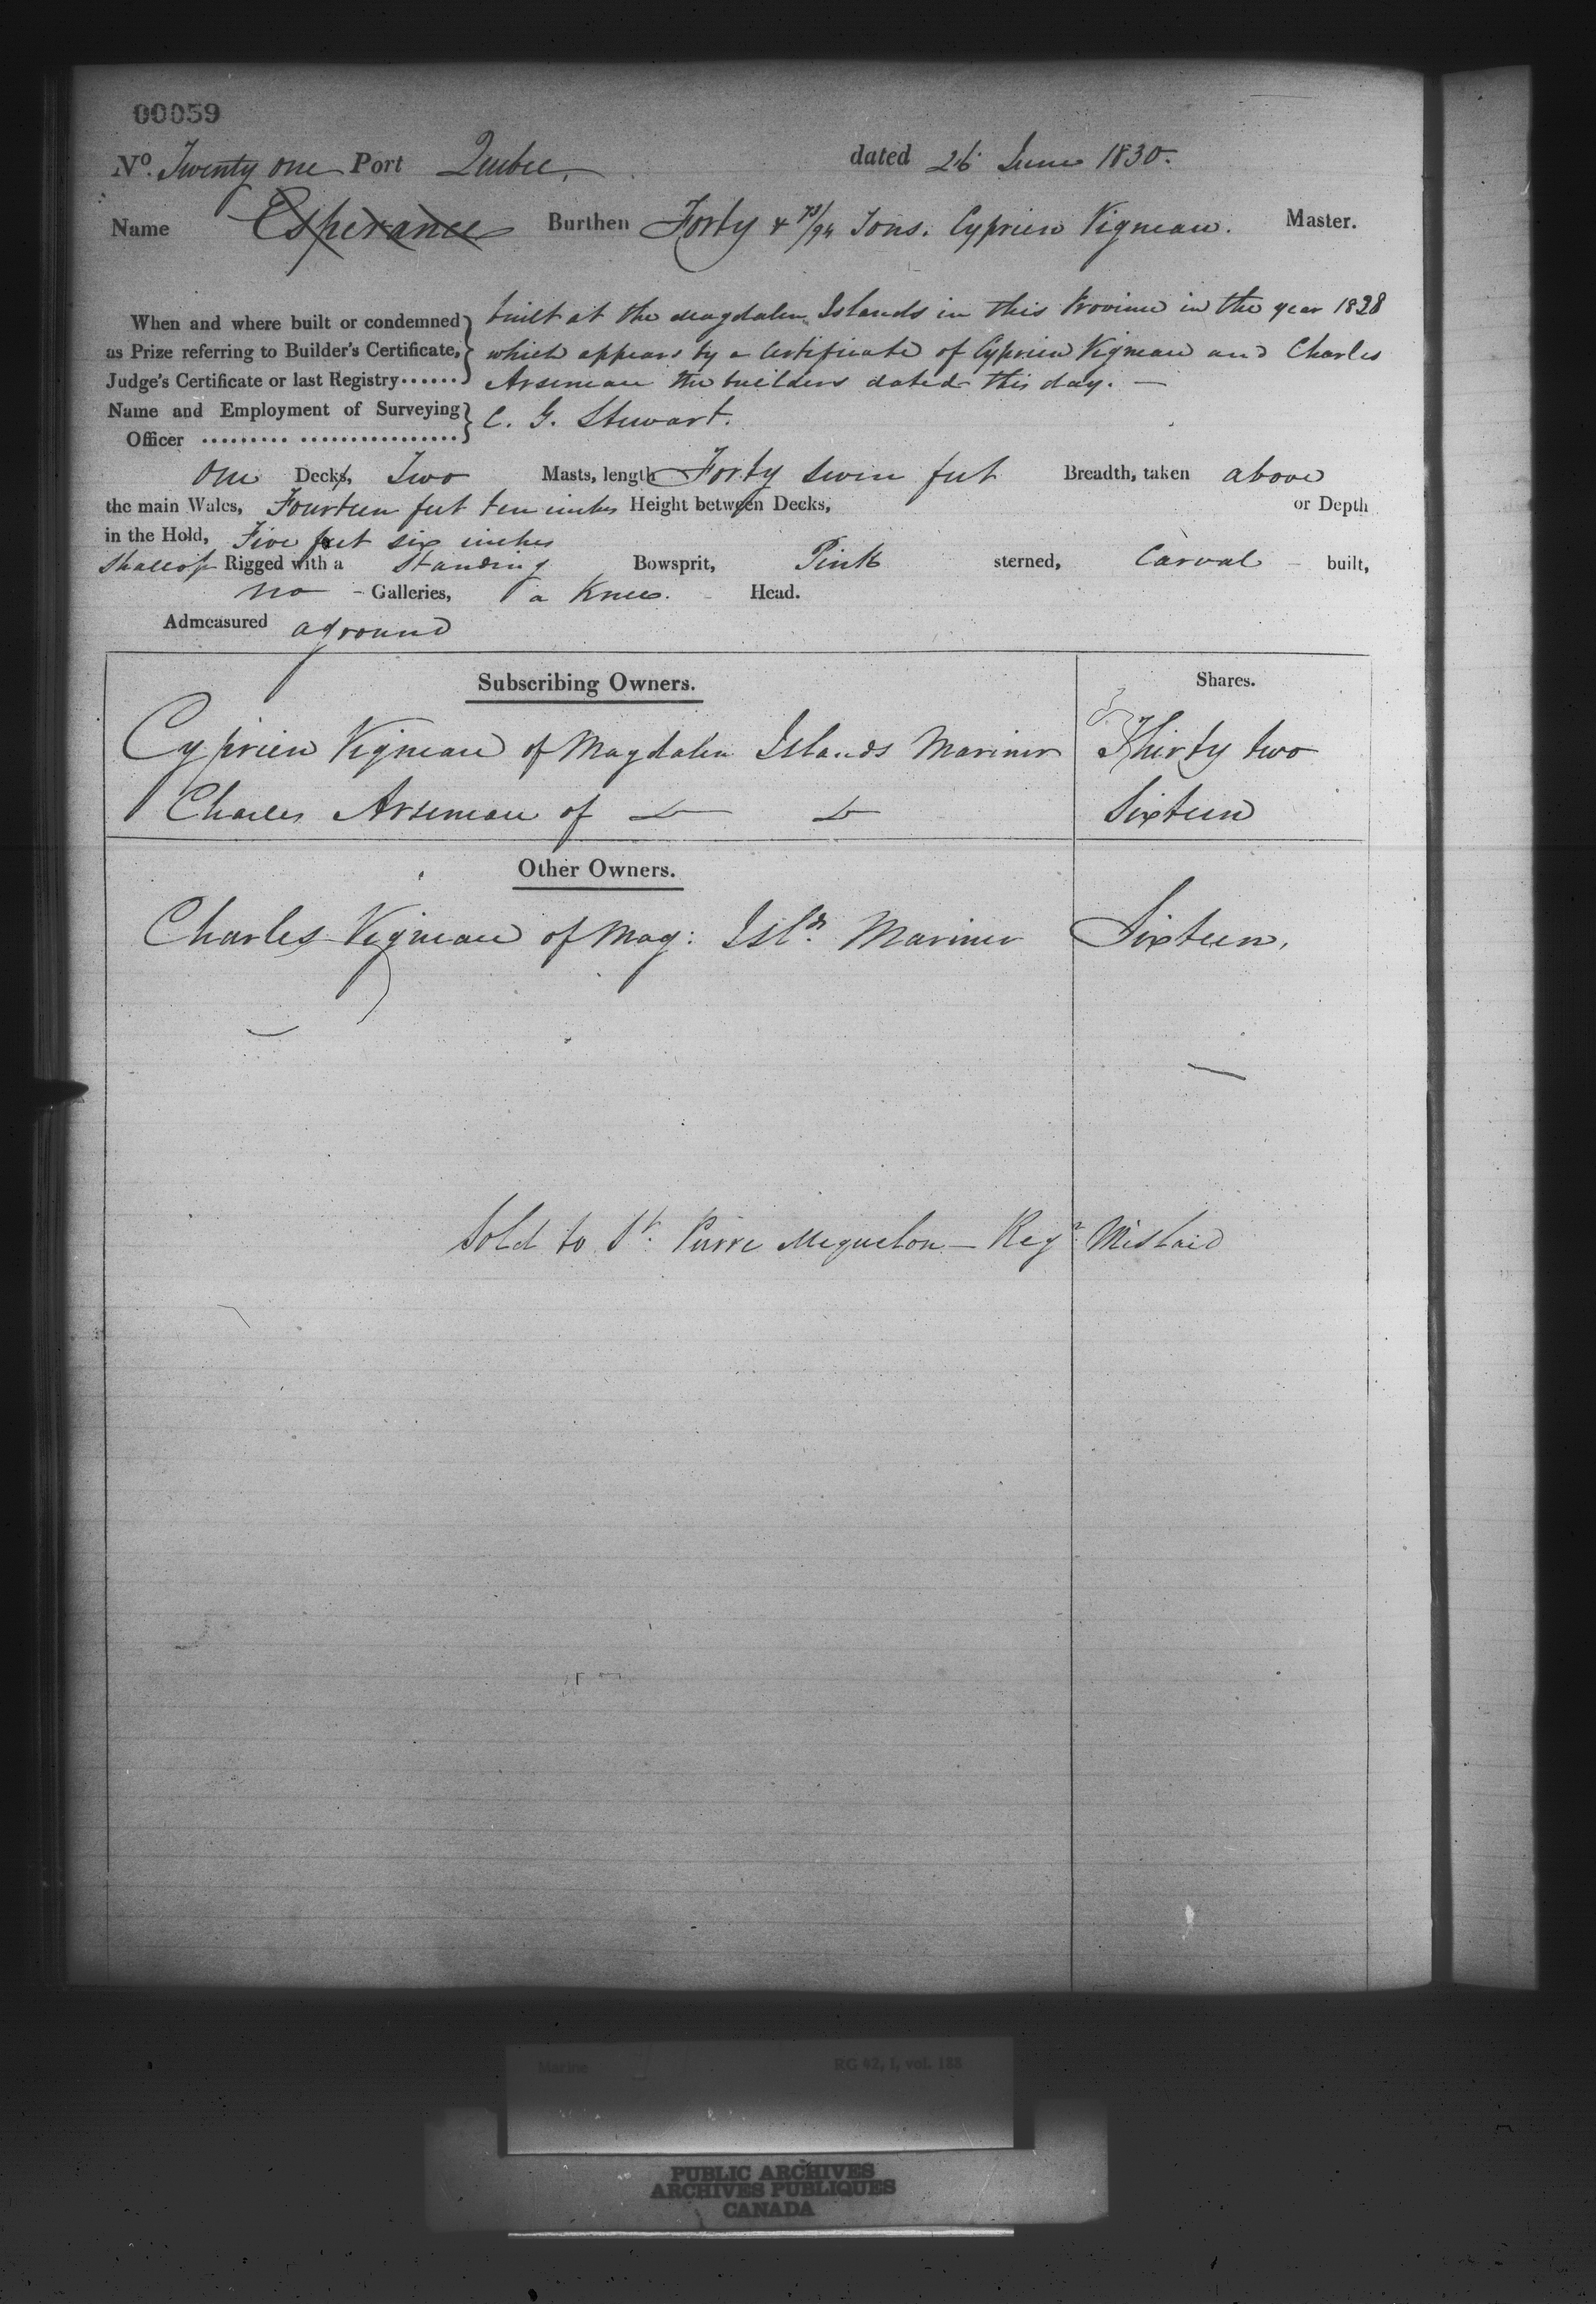 00059
No. Twenty one Port Quebec, dated 26 June 1830.
Name Esperance Burthen Forty & 73/94 Tons. Cyprien Vigneau. Master.
When and where built or condemned as Prize referring to Builder's Certificate, Judge's Certificate or last Registry......
built at the Magdalen Islands in this Province in the year 1828
which appears by a Certificate of Cyprien Vigneau and Charles
Arseneau the builders dated this day. —
Name and Employment of Surveying Officer ......... ................ C. G. Stewart.
One Decks, Two Masts, length Forty seven feet Breadth, taken above
the main Wales, Fourteen feet ten inches Height between Decks, or Depth
in the Hold, Five feet six inches
Shallop Rigged with a Standing Bowsprit, Pink sterned, Carval built,
no - Galleries, a Knee. Head.
Admeasured aground
Subscribing Owners. Shares.
Cyprien Vigneau of Magdalen Islands Mariner Thirty two
Charles Arseneau of Do Do Sixteen
Other Owners.
Charles Vigneau of Mag: Islds. Mariner Sixteen,
Sold to St. Pierre Miquelon — Regr. Mislaid
Marine RG 42, I, vol. 188
PUBLIC ARCHIVES
ARCHIVES PUBLIQUES
CANADA